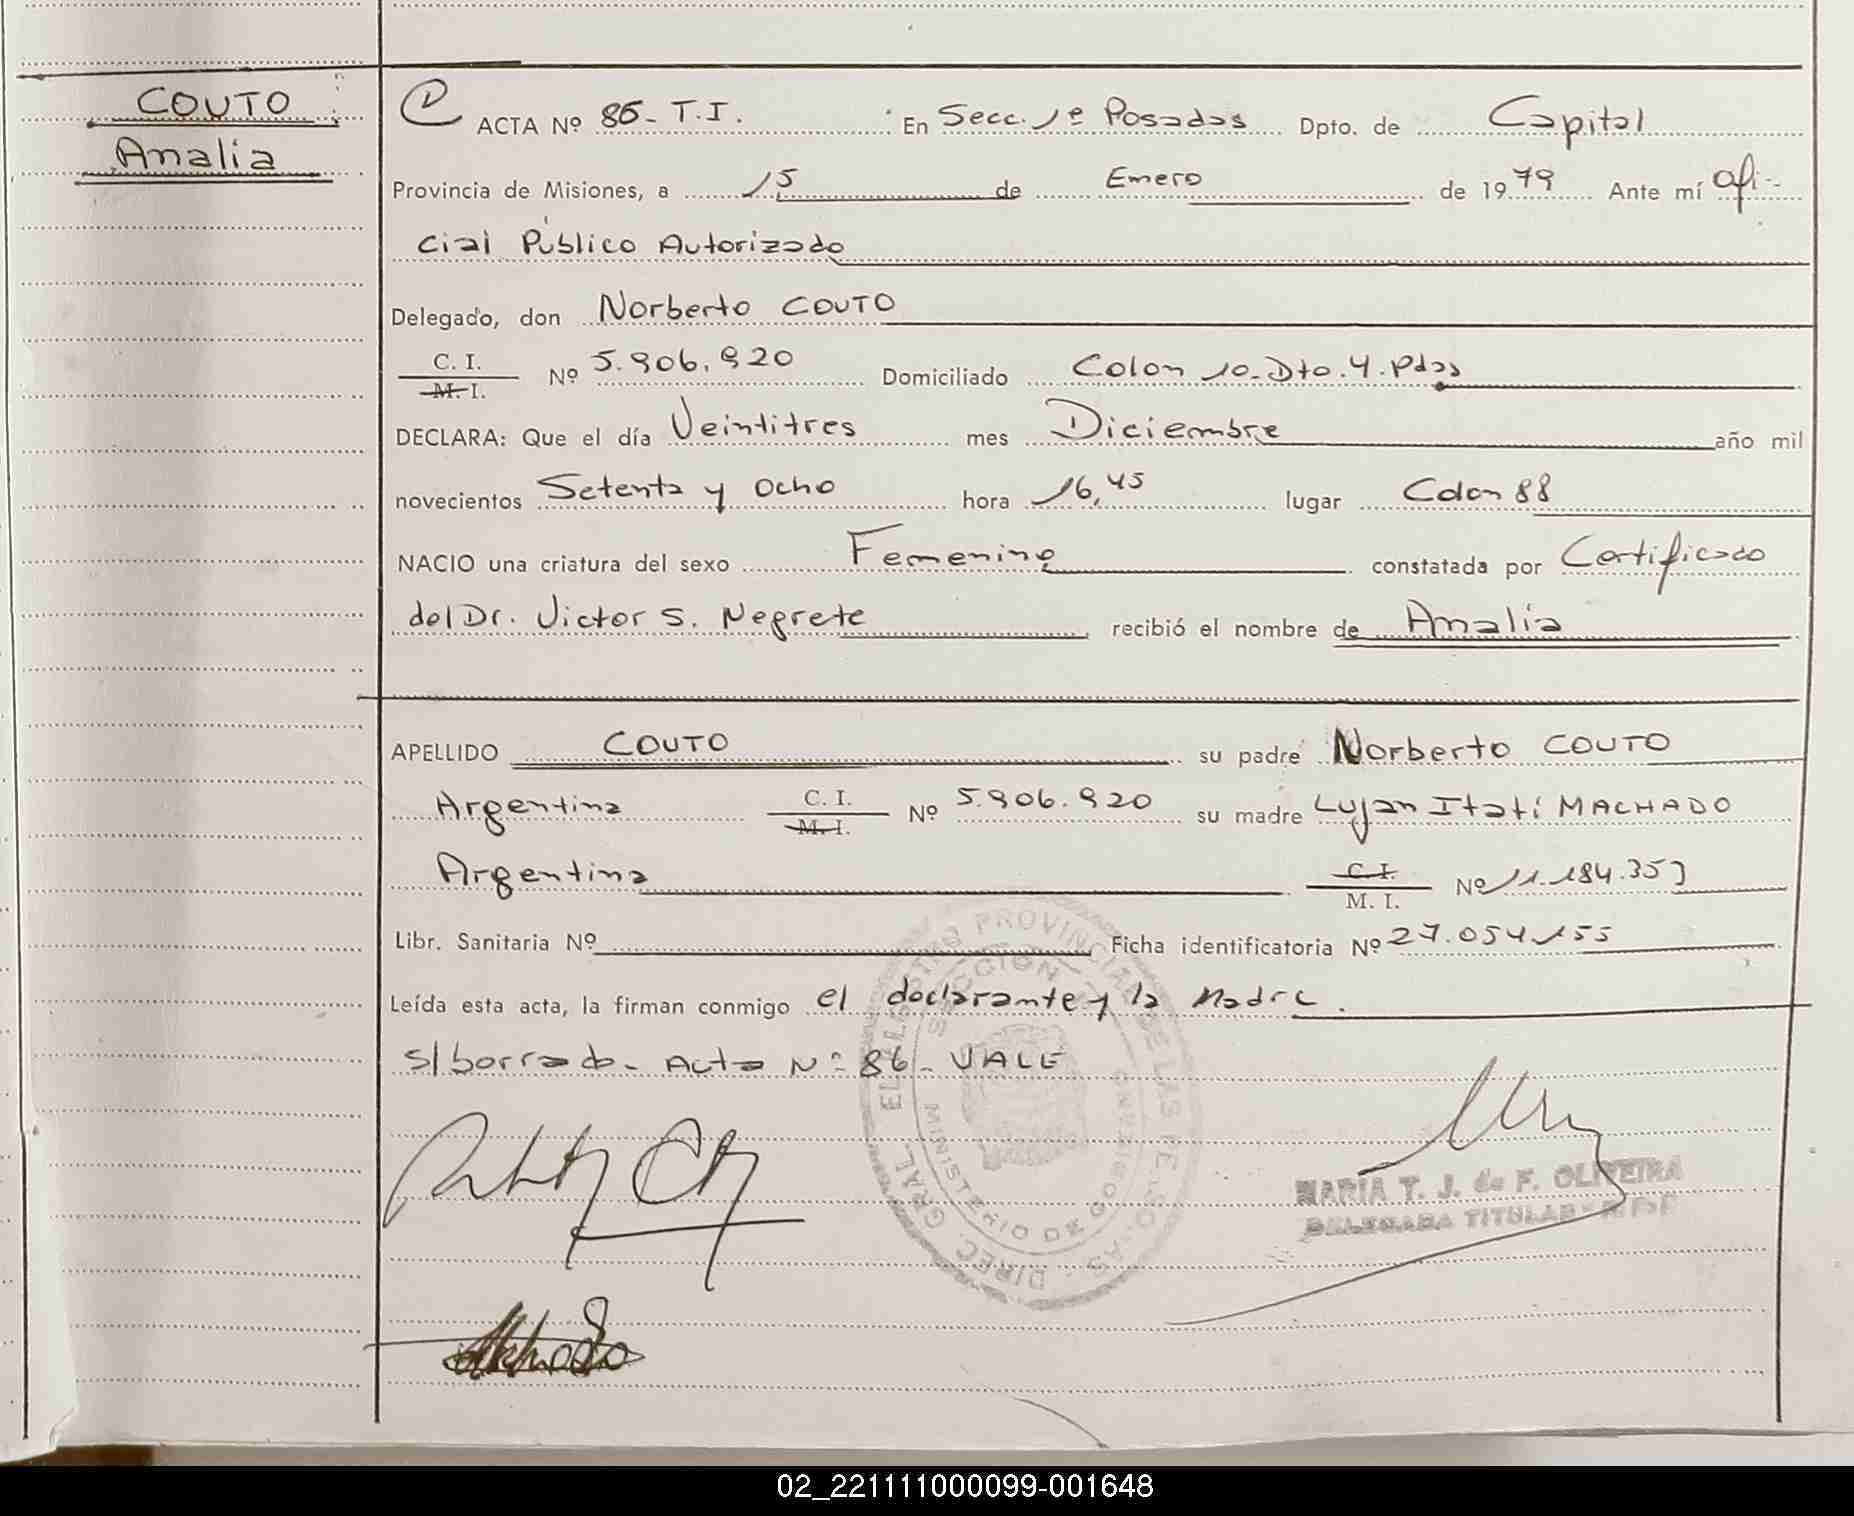 COUTO
Analia
ACTA Nº 86- T.I. En Secc. 1ª Posadas Dpto. de Capital
Provincia de Misiones, a 15 de Enero de 1979 Ante mí ofi-
cial Público Autorizado
Delegado, don Norberto COUTO
C. I.
M. I. Nº 5.906.920 Domiciliado Colon 10-Dto.4.Pdas
DECLARA: Que el día Veintitres mes Diciembre año mil
novecientos Setenta y Ocho hora 16,45 lugar Colon 88
NACIO una criatura del sexo Femenino constatada por Certificado
del Dr. Victor S. Negrete recibió el nombre de Analia
APELLIDO COUTO su padre Norberto COUTO
Argentina C. I.
M. I. Nº 5.906.920 su madre Lujan Itatí MACHADO
Argentina C. I.
M. I. Nº 11.184.353
Libr. Sanitaria Nº Ficha identificatoria Nº 27.054.155
Leída esta acta, la firman conmigo el declarante y la Madre.
s/borrado- Acta Nº 86- VALE
MARIA T. J. de F. OLIVEIRA
DELEGADA TITULAR
DIREC. GRAL. EL REGISTRO PROVINCIAL DE LAS PERSONAS
SECCION
MINISTERIO DE GOBIERNO
02_221111000099-001648